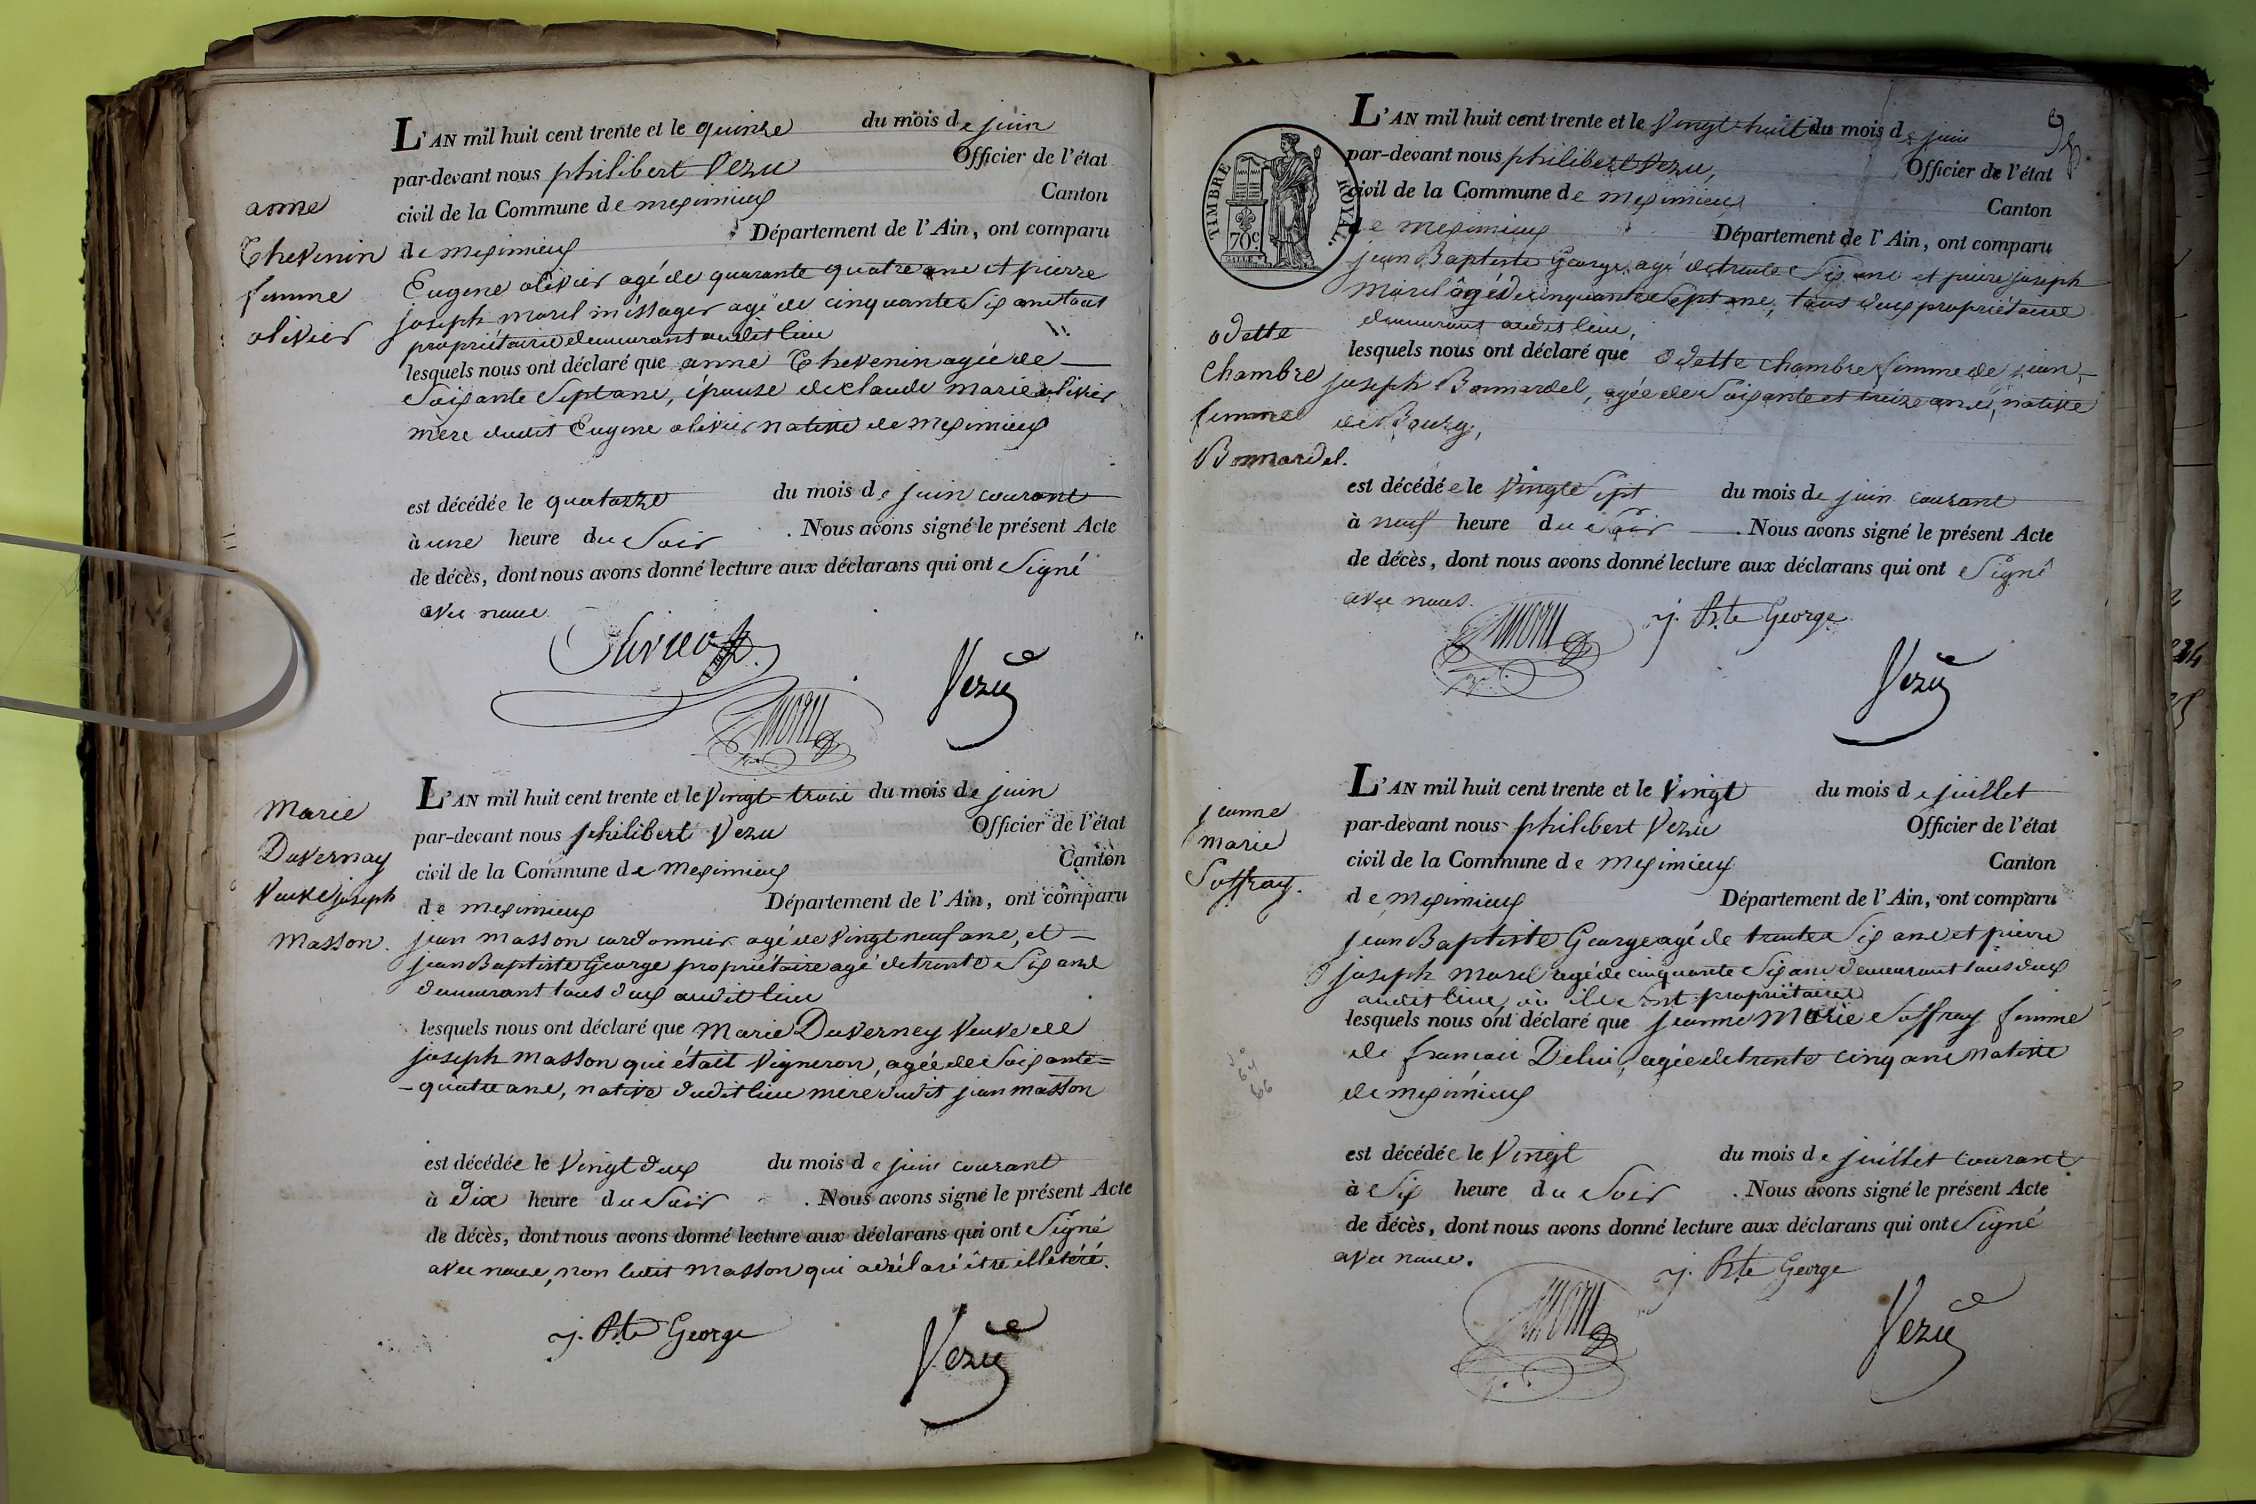 anne
Thevenin
femme
olivier
L'AN mil huit cent trente et le quinze du mois de juin
par-devant nous philibert Vezu Officier de l'état
civil de la Commune de meximieux Canton
de meximieux Département de l'Ain, ont comparu
Eugene olivier agé de quarante quatre ans et pierre
joseph morel méssager agé de cinquante six ans tous
propriétaires demeurant audit lieu
lesquels nous ont déclaré que anne Thevenin agée de
Soixante Sept ans, épouse de claude Marie olivier
mere dudit Eugene olivier native de meximieux
est décédée le quatorze du mois de juin courant
à une heure du Soir. Nous avons signé le présent Acte
de décès, dont nous avons donné lecture aux déclarans qui ont Signé
avec nous
Vezu
Marie
Duvernay
Veuve joseph
Masson.
L'AN mil huit cent trente et le Vingt-trois du mois de juin
par-devant nous philibert Vezu Officier de l'état
civil de la Commune de meximieux Canton
de meximieux Département de l'Ain, ont comparu
jean masson cordonnier agé de Vingt neuf ans, et
jean Baptiste George propriétaire agé de trente Six ans
demeurant tous deux audit lieu
lesquels nous ont déclaré que Marie Duverney Veuve de
joseph masson qui était Vigneron, agée de Soixante=
-quatre ans, native dudit lieu mere dudit jean masson
est décédée le Vingt deux du mois de juin courant
à Dix heure du Soir. Nous avons signé le présent Acte
de décès, dont nous avons donné lecture aux déclarans qui ont Signé
avec nous, non ledit Masson qui a déclaré être illétéré.
j. Bte George
Vezu
TIMBRE ROYAL.
70c
L'AN mil huit cent trente et le Vingt-huit du mois de juin
par-devant nous philibert Vezu, Officier de l'état
civil de la Commune de meximieux Canton
de meximieux Département de l'Ain, ont comparu
jean Baptiste George, agé de trente Six ans et pierre joseph
Morel âgé de cinquante Sept ans, tous deux propriétaires
demeurant audit lieu,
odette
Chambre
femme
Bonnardel.
lesquels nous ont déclaré que odette Chambre femme de jean-
joseph Bonnardel, agée de Soixante et treize ans, native
de Bourg,
est décédée le Vingt Sept du mois de juin courant
à neuf heure du Soir. Nous avons signé le présent Acte
de décès, dont nous avons donné lecture aux déclarans qui ont Signé
avec nous.
j. Bte George
Vezu
jeanne
marie
Soffray.
L'AN mil huit cent trente et le Vingt du mois de juillet
par-devant nous philibert Vezu Officier de l'état
civil de la Commune de meximieux Canton
de meximieux Département de l'Ain, ont comparu
jean Baptiste George agé de trente Six ans et pierre
joseph Morel agé de cinquante Six ans demeurant tous deux
audit lieu, où ils Sont propriétaires
lesquels nous ont déclaré que jeanne Marie Soffray femme
de francois Delui, agée de trente cinq ans Native
de meximieux
est décédée le Vingt du mois de juillet courant
à Six heure du Soir. Nous avons signé le présent Acte
de décès, dont nous avons donné lecture aux déclarans qui ont Signé
avec nous.
j. Bte George
Vezu